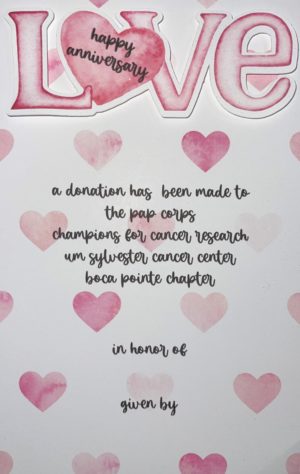 Love
happy
anniversary
a donation has been made to
the pap corps
champions for cancer research
um sylvester cancer center
boca pointe chapter
in honor of
given by